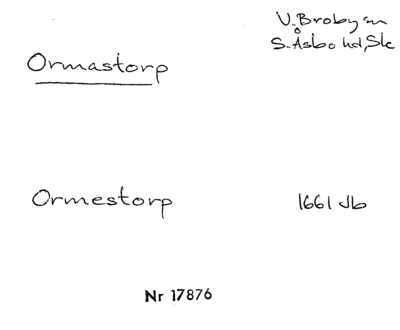 V. Broby sn
Ormastorp
S. Åsbo hd, Sk
Ormestorp
1661 Jb
Nr 17876